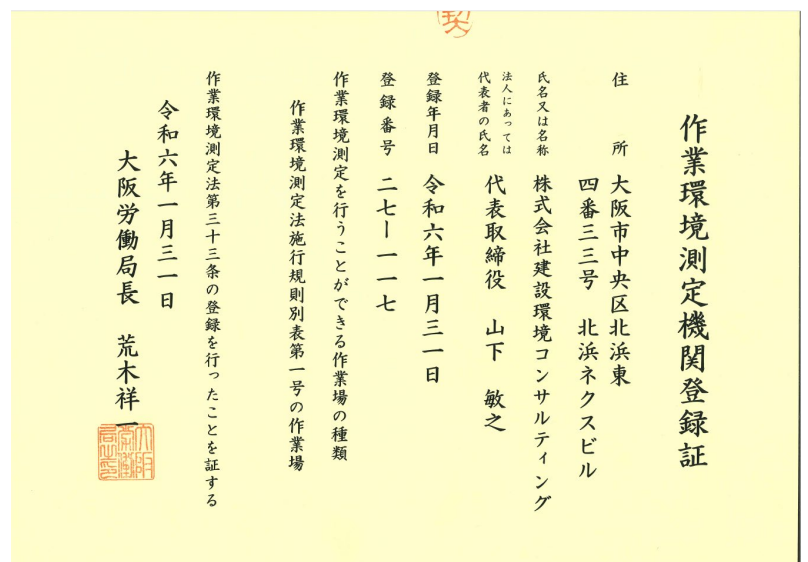 作業環境測定機関登録証
住所 大阪市中央区北浜東
四番三三号 北浜ネクスビル
氏名又は名称 株式会社建設環境コンサルティング
法人にあっては
代表者の氏名 代表取締役 山下 敏之
登録年月日 令和六年一月三一日
登録番号 二七ー一一七
作業環境測定を行うことができる作業場の種類
作業環境測定法施行規則別表第一号の作業場
作業環境測定法第三十三条の登録を行ったことを証する
令和六年一月三一日
大阪労働局長 荒木祥一